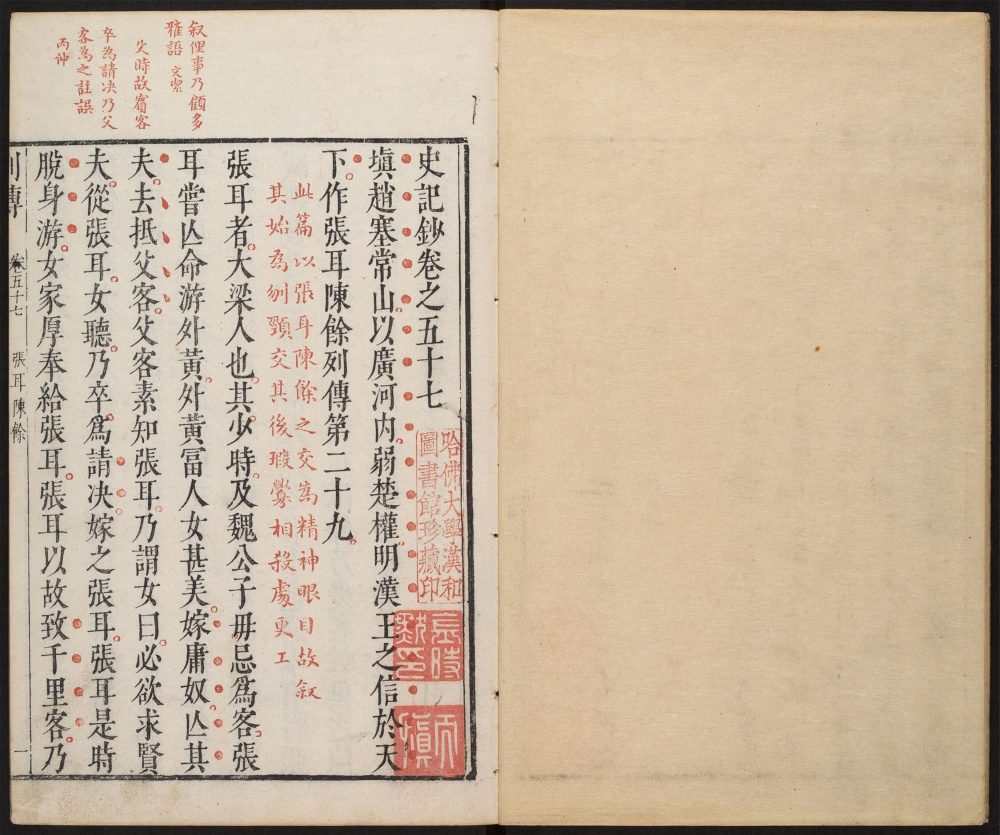 史記鈔卷之五十七
塡趙塞常山以廣河内弱楚權明漢王之信於天
下作張耳陳餘列傳第二十九
此篇以張耳陳餘之交為精神眼目故叙
其始為刎頸交其後瑕釁相殺處更工
張耳者大梁人也其少時及魏公子毋忌爲客張
耳嘗亾命游外黃外黃富人女甚美嫁庸奴亾其
夫去抵父客父客素知張耳乃謂女曰必欲求賢
夫從張耳女聽乃卒爲請决嫁之張耳張耳是時
脫身游女家厚奉給張耳張耳以故致千里客乃
叙俚事乃顧多
雅語
父時故賓客
卒為請决乃父
客為之註誤
列傳
卷五十七
張耳陳餘
一
哈佛大學漢和
圖書館珍藏印